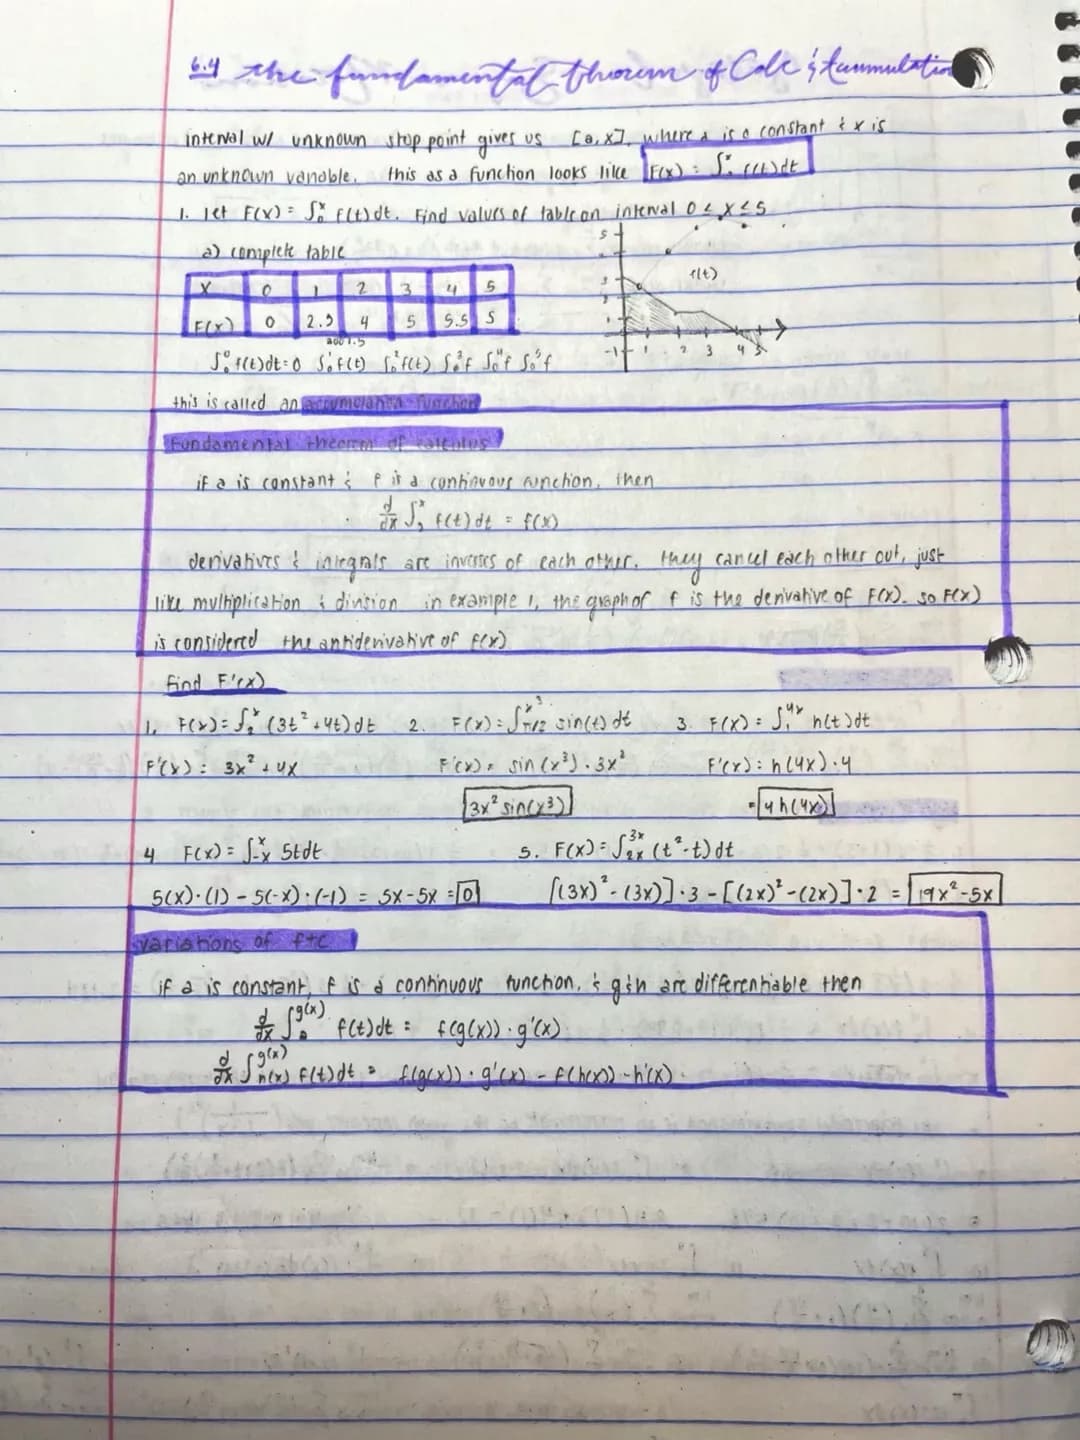 6.4 the fundamental thorem of Calc & Accumulation
interval w/ unknown stop point gives us [a,x], where a is a constant & x is
an unknown variable. this as a function looks like F(x) = ∫ₐˣ f(t)dt
1. let F(x) = ∫₀ˣ f(t)dt. Find values of table on interval 0 ≤ x ≤ 5
a) complete table
x 0 1 2 3 4 5
F(x) 0 2.5 4 5 5.5 5
add 1.5
∫₀⁰ f(t)dt=0 ∫₀¹f(t) ∫₀²f(t) ∫₀³f ∫₀⁴f ∫₀⁵f
5
3
2
1
-1 1 2 3 4 5
f(t)
this is called an accumulation function
Fundamental theorem of calculus
if a is constant & f is a continuous function, then
d/dx ∫ₐˣ f(t)dt = f(x)
derivatives & integrals are inverses of each other. they cancel each other out, just
like multiplication & division in example 1, the graph of f is the derivative of F(x). so F(x)
is considered the antiderivative of f(x)
find F'(x)
1. F(x)=∫₂ˣ (3t²+4t)dt 2. F(x)=∫_{π/2}^{x³} sin(t) dt 3. F(x)=∫₁^{4x} h(t)dt
F'(x) = 3x²+4x F'(x) = sin(x³)·3x² F'(x) = h(4x)·4
3x² sin(x³) = 4h(4x)
4 F(x) = ∫₋ₓˣ 5tdt 5. F(x)=∫_{2x}^{3x} (t²-t)dt
5(x)·(1) - 5(-x)·(-1) = 5x-5x = 0 [(3x)²-(3x)]·3-[(2x)²-(2x)]·2 = 19x²-5x
variations of ftc
if a is constant, f is a continuous function, & g & h are differentiable then
d/dx ∫ₐ^{g(x)} f(t)dt = f(g(x))·g'(x)
d/dx ∫_{h(x)}^{g(x)} f(t)dt = f(g(x))·g'(x) - f(h(x))·h'(x)